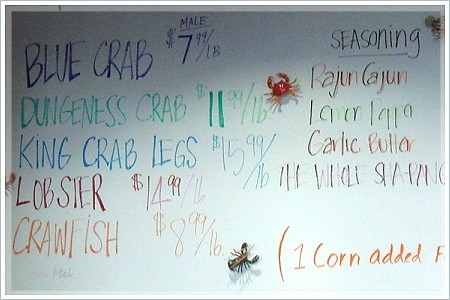 MALE
BLUE CRAB $7.99/LB
DUNGENESS CRAB $11.99/lb
KING CRAB LEGS $15.99/lb
LOBSTER $14.99/lb
CRAWFISH $8.99/lb.
SEASONING
Rajun Cajun
Lemon Peppa
Garlic Butter
THE WHOLE SHA-BANG
(1 Corn added F
Mei Mei